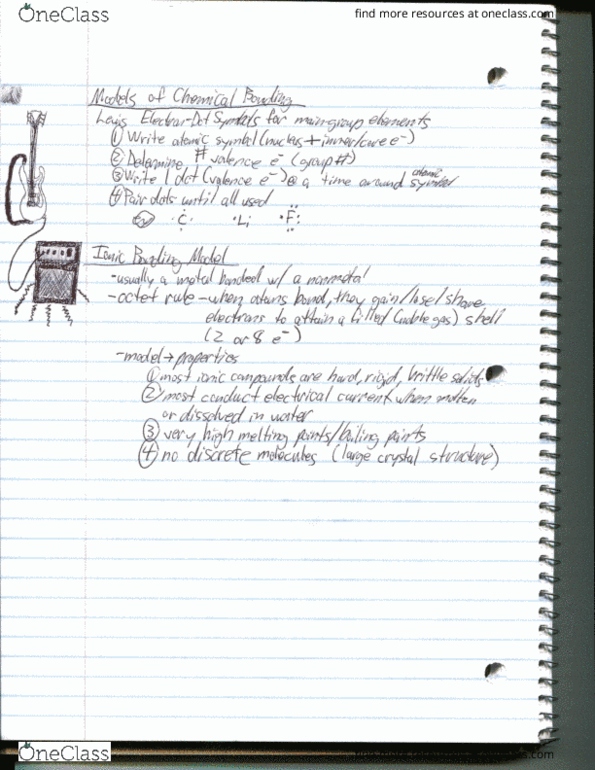 OneClass
find more resources at oneclass.com
Models of Chemical Bonding
Lewis Electron-Dot Symbols for main-group elements
① Write atomic symbol (nucleus + inner/core e⁻)
② Determine # valence e⁻ (group #)
③ Write 1 dot (valence e⁻) @ a time around atomic symbol
④ Pair dots until all used
ex C Li F
Ionic Bonding Model
-usually a metal bonded w/ a nonmetal
-octet rule - when atoms bond, they gain/lose/share
electrons to attain a filled (noble gas) shell
(2 or 8 e⁻)
-model → properties
① most ionic compounds are hard, rigid, brittle solids
② most conduct electrical current when molten
or dissolved in water
③ very high melting points/boiling points
④ no discrete molecules (large crystal structure)
OneClass
find more resources at oneclass.com